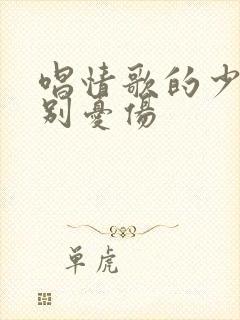 唱情歌的少
别憂傷
单虎